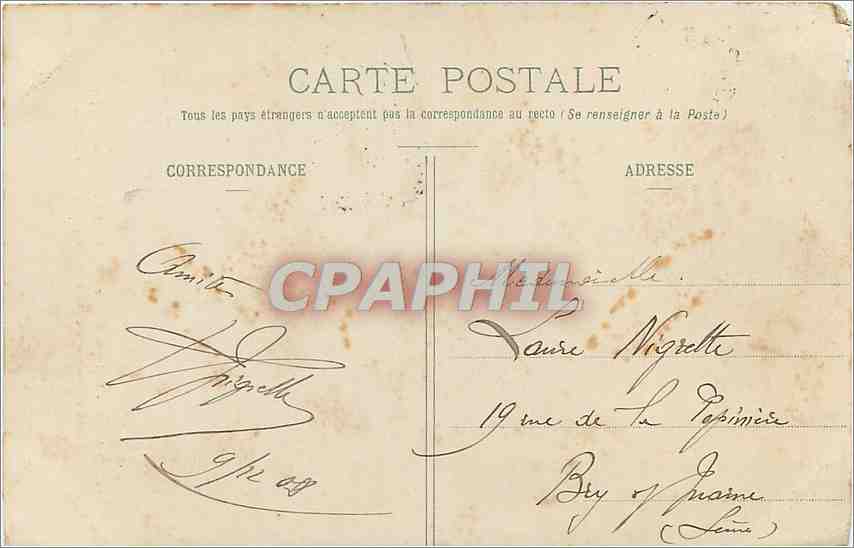 CARTE POSTALE
Tous les pays étrangers n'acceptent pas la correspondance au recto (Se renseigner à la Poste)
CORRESPONDANCE
ADRESSE
Amitiés
Nigrelle
9/12 08
CPAPHIL
Mademoiselle.
Laure Nigrette
19 rue de la Pépinière
Bry s/ Marne
(Seine)